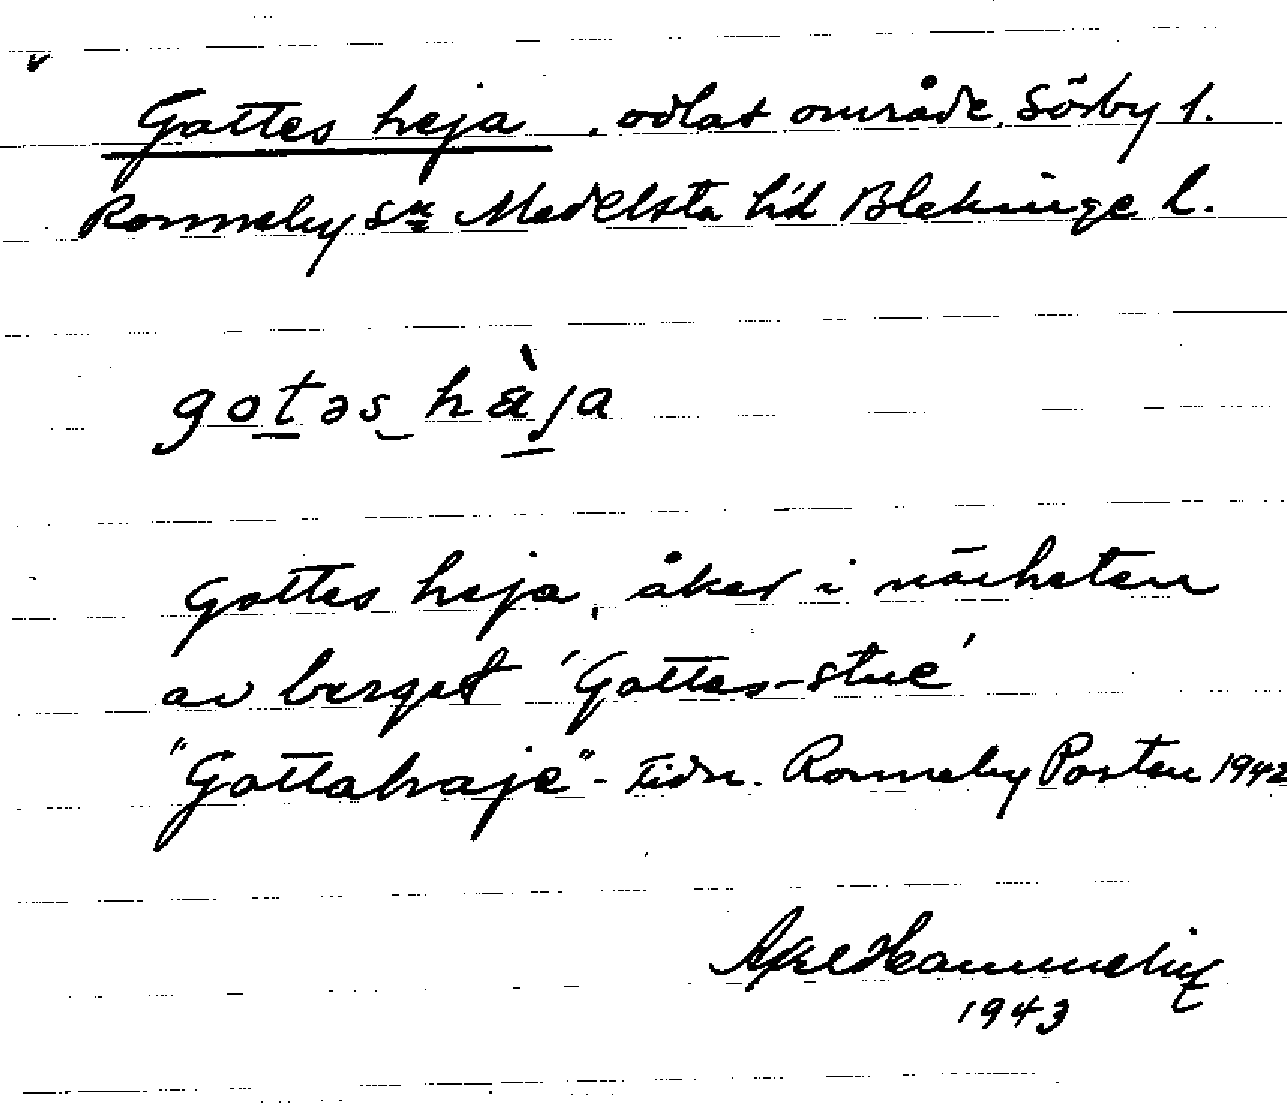 Gottes heja, odlat område, Sörby 1.
Ronneby sn Medelsta h'd Blekinge l.
gotəs hàja
Gottes heja, åker i närheten
av berget 'Gottes-stue'
"Gottahaje" - Tidn. Ronneby Posten 1942
Axel Hammelin
1943